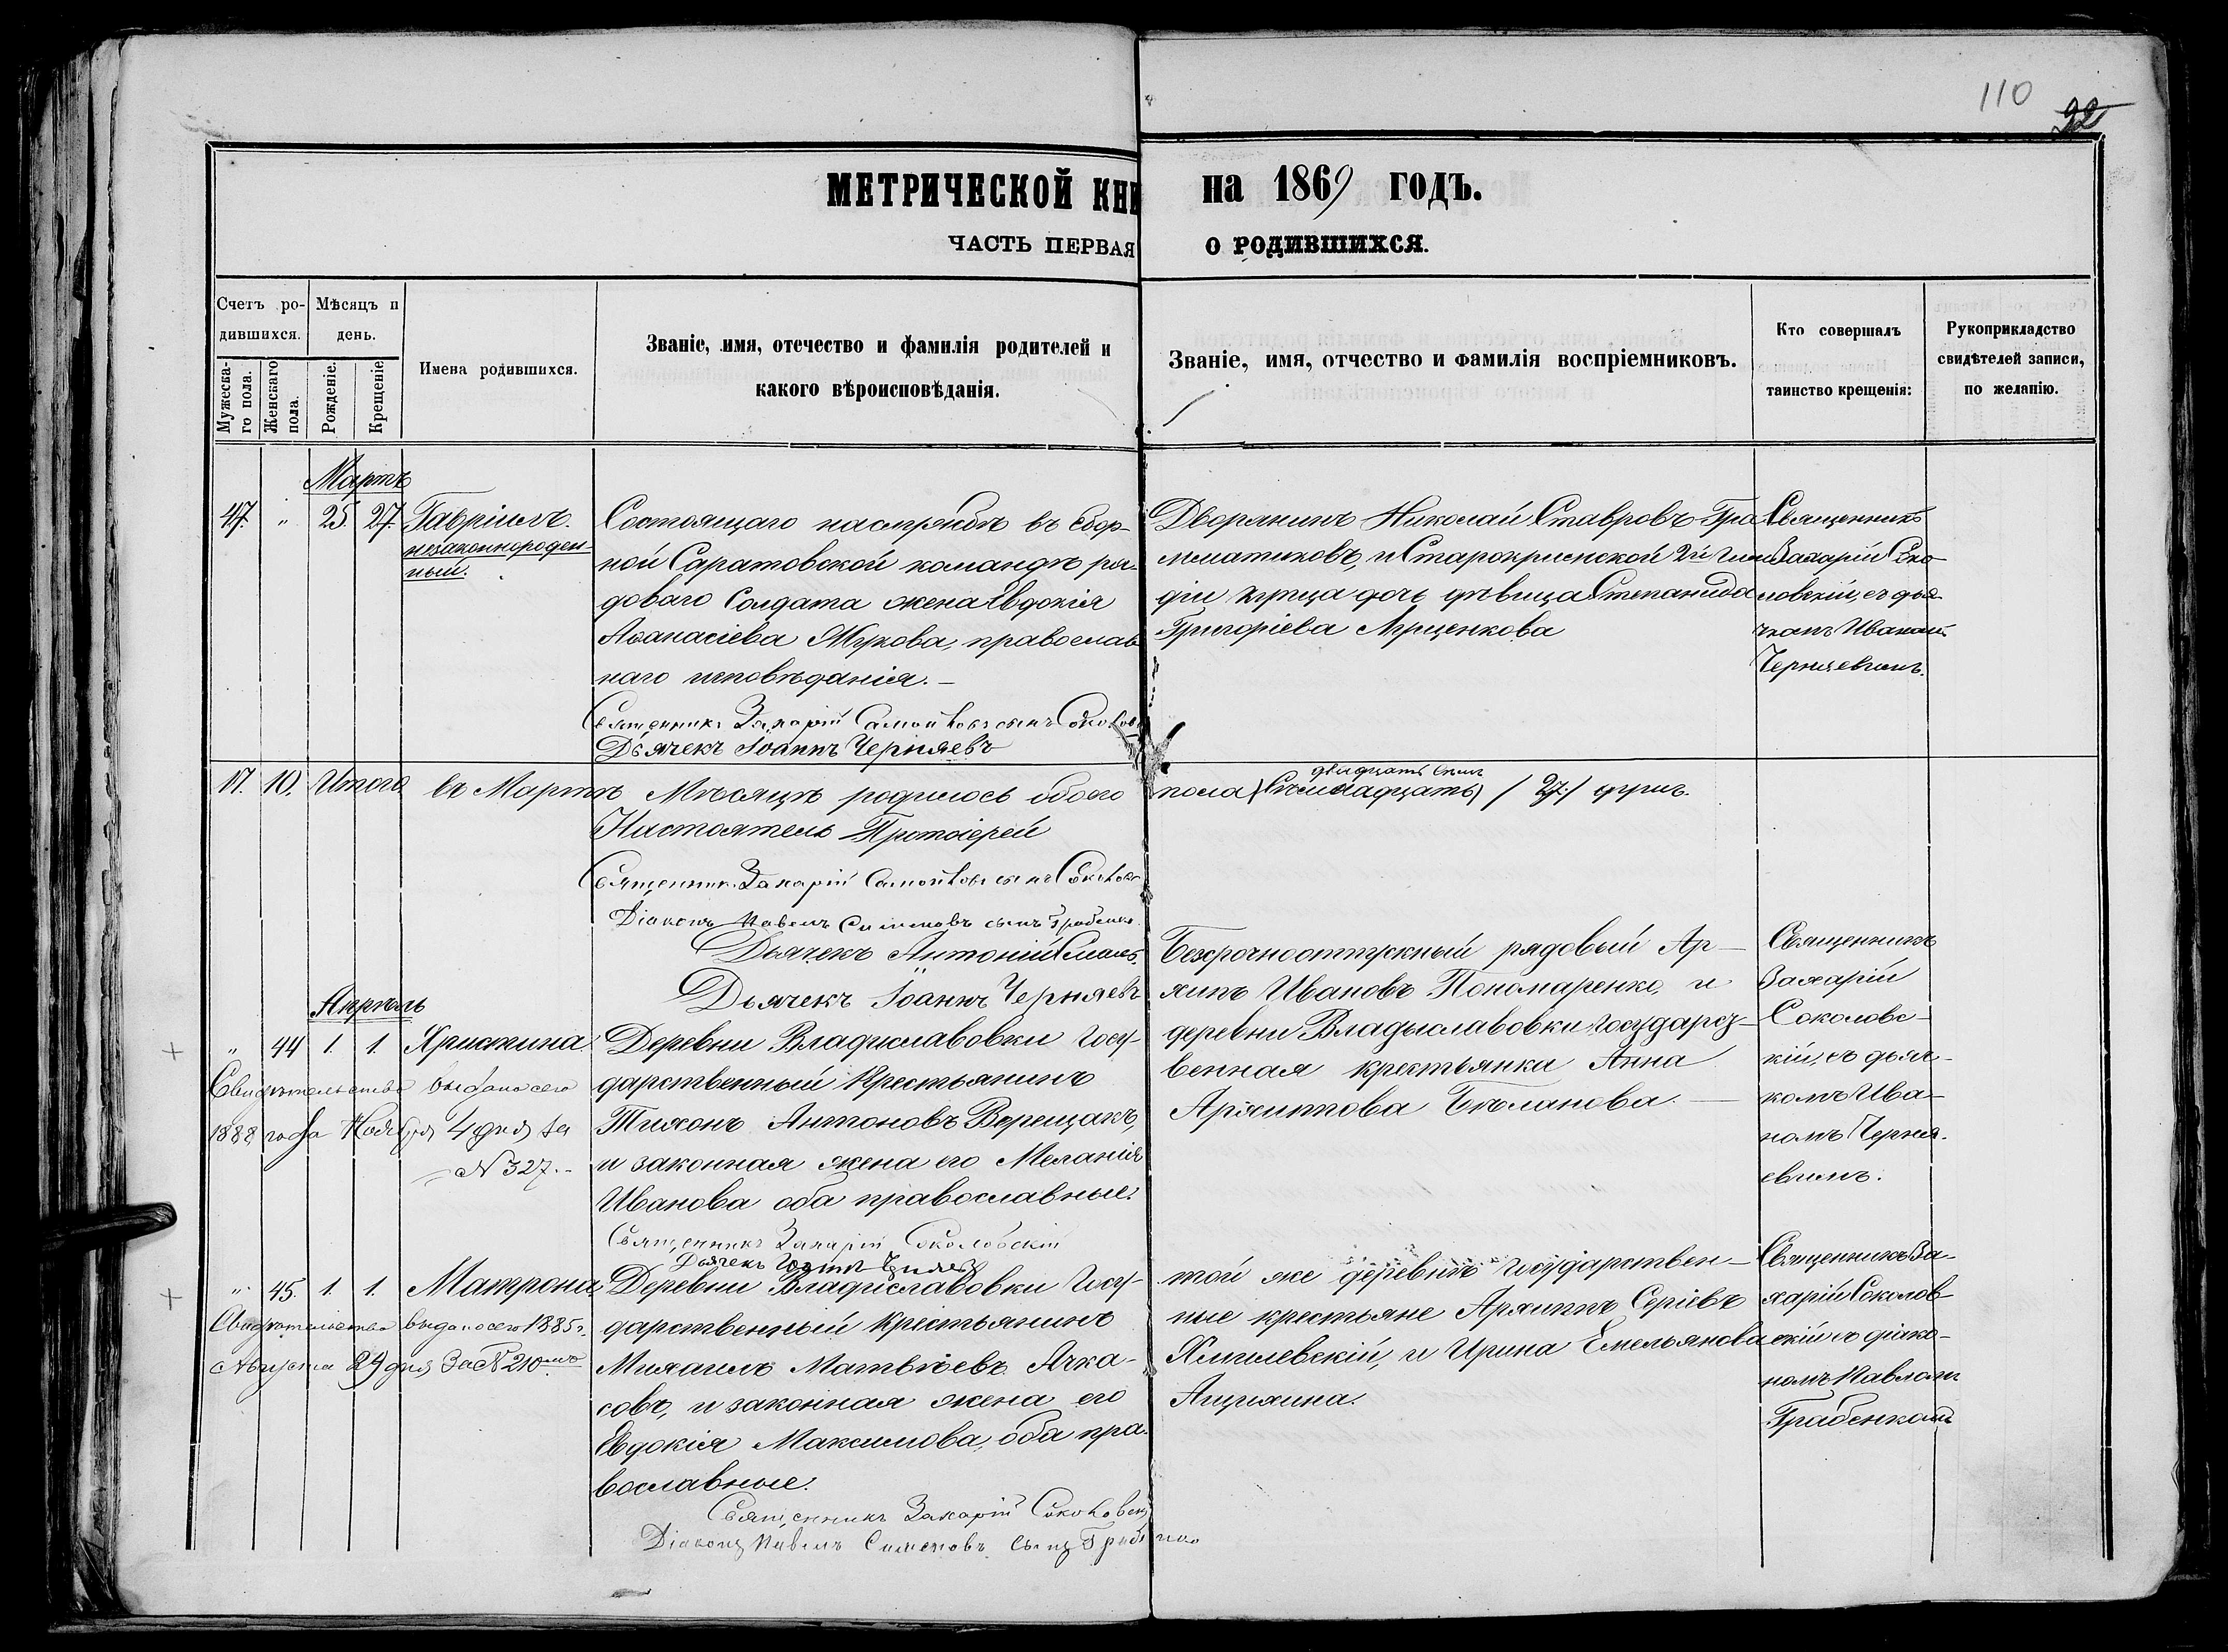 110
22
МЕТРИЧЕСКОЙ КНИ
на 1869 годъ.
ЧАСТЬ ПЕРВАЯ
О РОДИВШИХСЯ.
Счетъ ро-
дившихся.
Мужеска-
го пола.
Женскаго
пола.
Мѣсяцъ и
день.
Рожденіе.
Крещеніе
Имена родившихся.
Званіе, имя, отечество и фамилія родителей и
какого вѣроисповѣданія.
Званіе, имя, отчество и фамилія воспріемниковъ.
Кто совершалъ
таинство крещенія:
Рукоприкладство
свидѣтелей записи,
по желанію.
Мартъ
47. " 25. 27. Гавріилъ.
незаконнорожден-
ный.
Состоящаго на службѣ въ Сбор-
ной Саратовской командѣ ря-
доваго Солдата жена Евдокія
Аѳанасіева Жукова, православ
наго исповѣданія. –
Священникъ Захарій Самойловъ сынъ Соколов
Дьячекъ Іоаннъ Черняевъ
Дворянинъ Николай Ставровъ Гра
мматиковъ, и Старокрымской 2й гиль
діи купца дочь дѣвица Степанида
Григоріева Луценкова
Священникъ
Захарій Соко-
ловскій, съ дья-
чкомъ Иваномъ
Черняевымъ.
17. 10. Итого въ Мартѣ Мѣсяцѣ родилось обоего
двадцать семь
пола (Семнадцать) / 27 / душъ.
Настоятель Протоіерей
Священникъ Захарій Самойловъ сынъ Соколов
Діаконъ Павелъ Симеоновъ сынъ Грабенко
Дьячекъ Антоній
Дьячекъ Іоаннъ Черняевъ
Апрѣль
" 44 1. 1. Христина.
Свидѣтельство выдано сего
1888 года Ноября 4 дня за
№ 327. –
Деревни Владиславовки Госу-
дарственный Крестьянинъ
Тихонъ Антоновъ Верещакъ,
и законная жена его Меланія
Иванова оба православные.
Священникъ Захарій Соколовскій
Дьячекъ Іоаннъ Черняевъ
Безсрочноотпускный рядовый Ар-
хипъ Ивановъ Пономаренко, и
деревни Владыславовки государст-
венная крестьянка Анна
Архиппова Бѣланова. –
Священникъ
Захарій
Соколовс-
кій, съ дьяч-
комъ Ива-
номъ Черня-
евымъ.
" 45. 1. 1. Матрона.
Свидѣтельство выдано сего 1885 г.
Августа 29 дня За № 210мъ
Деревни Владиславовки Госу-
дарственный Крестьянинъ
Михаилъ Матвѣевъ Ачка-
совъ, и законная жена его
Евдокія Максимова, оба пра-
вославные.
Священникъ Захарій Соколовскі
Діаконъ Павелъ Симеоновъ сынъ Грабенко
той же деревни государствен-
ные крестьяне Архиппъ Сергіевъ
Хмилевскій, и Ирина Емельянова
Анцихина.
Священникъ За-
харій Соколов-
скій съ діако-
номъ Павломъ
Грабенкомъ